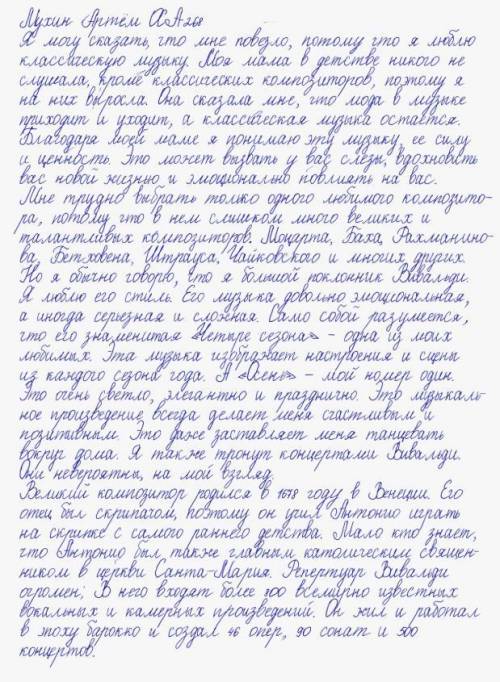 Лухин Артём ОХ-А268
Я могу сказать, что мне повезло, потому что я люблю
классическую музыку. Моя мама в детстве никого не
слушала, кроме классических композиторов, поэтому я
на них выросла. Она сказала мне, что мода в музыке
приходит и уходит, а классическая музыка остается.
Благодаря моей маме я понимаю эту музыку, ее силу
и ценность. Это может вызвать у вас слезы, вдохновить
вас новой жизнью и эмоционально повлиять на вас.
Мне трудно выбрать только одного любимого композито-
ра, потому что в нем слишком много великих и
талантливых композиторов. Моцарта, Баха, Рахманино-
ва, Бетховена, Штрауса, Чайковского и многих других.
Но я обычно говорю, что я большой поклонник Вивальди.
Я люблю его стиль. Его музыка довольно эмоциональная,
а иногда серьезная и сложная. Само собой разумеется,
что его знаменитая «Четыре сезона» - одна из моих
любимых. Эта музыка изображает настроения и сцены
из каждого сезона года. А «Осень» - мой номер один.
Это очень светло, элегантно и празднично. Это музыкаль-
ное произведение всегда делает меня счастливым и
позитивным. Это даже заставляет меня танцевать
вокруг дома. Я также тронут концертами Вивальди.
Они невероятны, на мой взгляд.
Великий композитор родился в 1678 году в Венеции. Его
отец был скрипачом, поэтому он учил Антонио играть
на скрипке с самого раннего детства. Мало кто знает,
что Антонио был также главным католическим священ-
ником в церкви Санта-Мария. Репертуар Вивальди
огромен; В него входят более 700 всемирно известных
вокальных и камерных произведений. Он жил и работал
в эпоху барокко и создал 46 опер, 90 сонат и 500
концертов.